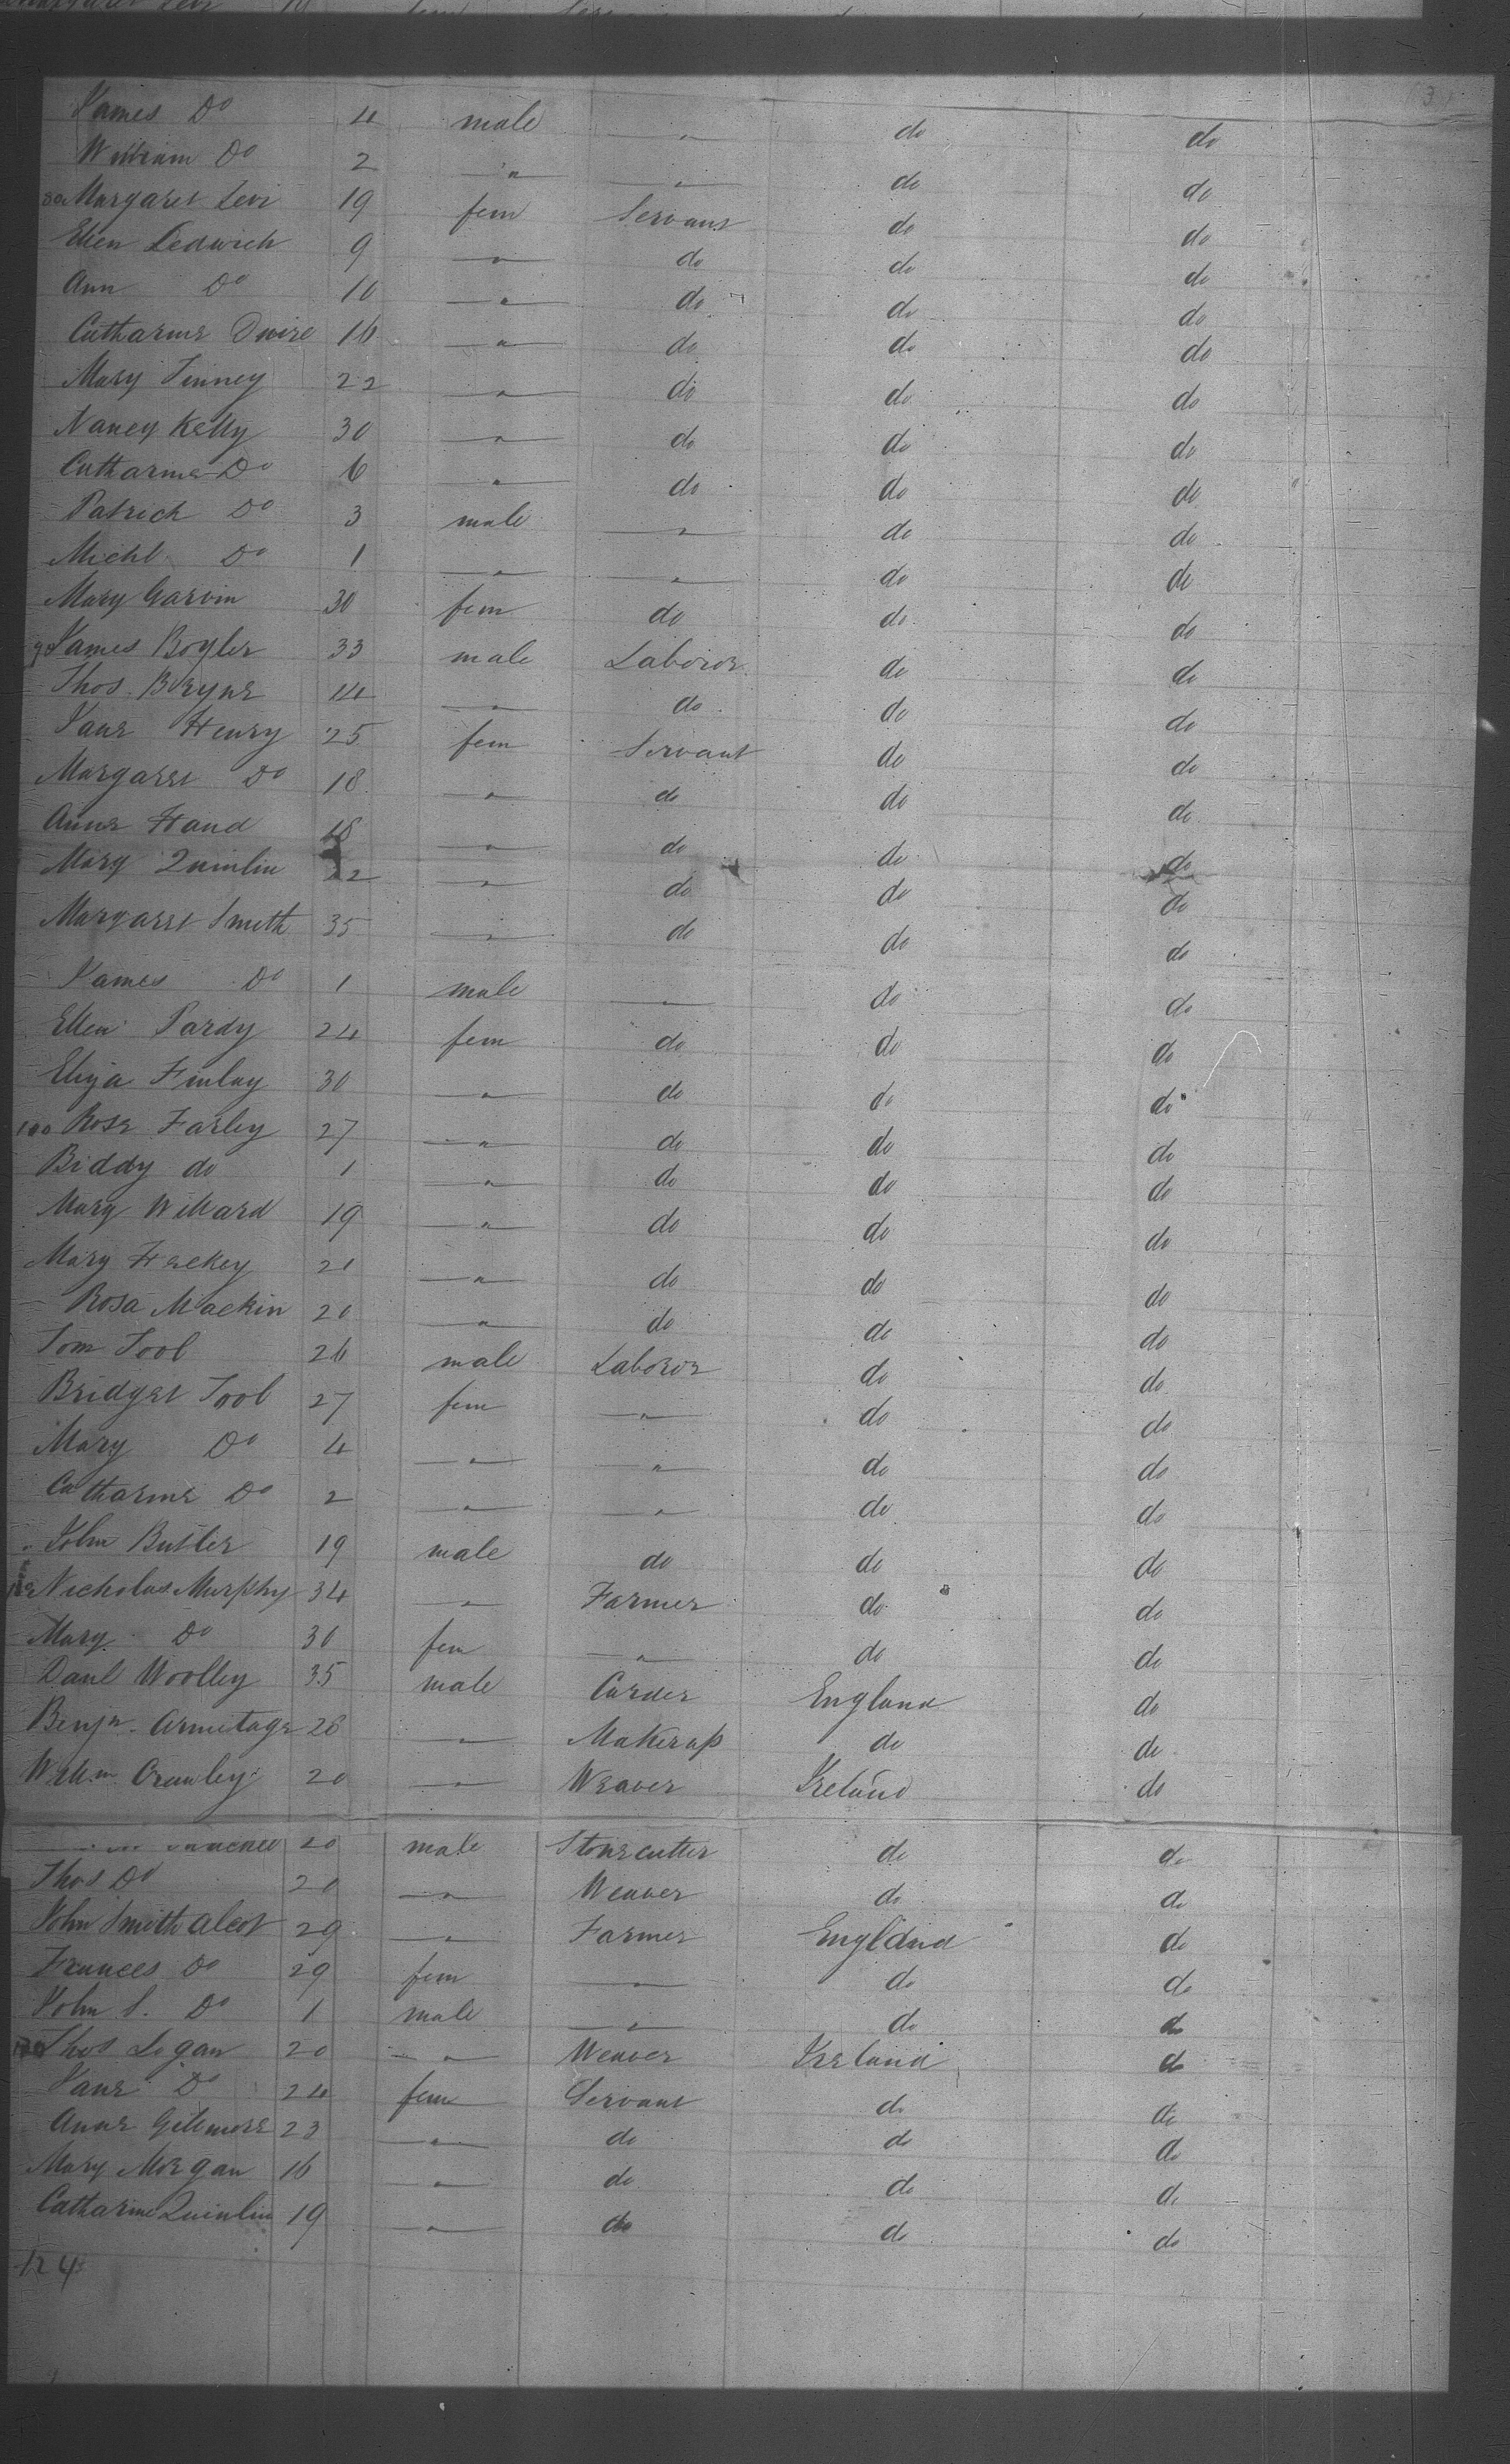 3
James Do 4 male " do do
William Do 2 " " do do
80 Margaret Levi 19 fem Servant do do
Ellen Ledwich 9 " do do do
Ann Do 10 " do do do
Catharine Dwire 16 " do do do
Mary Finney 22 " do do do
Nancy Kelly 30 " do do do
Catharine Do 6 " do do do
Patrick Do 3 male " do do
Michl Do 1 " " do do
Mary Garvin 30 fem do do do
90 James Boyler 33 male Laboror do do
Thos. Bryne 14 " do do do
Jane Henry 25 fem Servant do do
Margaret Do 18 " do do do
Anne Hand 18 " do do do
Mary Quinlin 22 " do do do
Margaret Smith 35 " do do do
James Do 1 male " do do
Ellen Pardy 24 fem do do do
Eliza Finlay 30 " do do do
100 Rose Farley 27 " do do do
Biddy do 1 " do do do
Mary Willard 19 " do do do
Mary Heckey 21 " do do do
Rosa Mackin 20 " do do do
Tom Tool 26 male Laboror do do
Bridget Tool 27 fem " do do
Mary Do 4 " " do do
Catharine Do 2 " " do do
John Butler 19 male do do do
Nicholas Murphy 34 " Farmer do do
Mary Do 30 fem " do do
Danl Woolley 35 male Carder England do
Benjn. Armitage 26 " Makerup do do
Willm Crawley 20 " Weaver Ireland do
20 male Stonecutter do do
Thos Do 20 " Weaver do do
John Smith Alcot 29 " Farmer England do
Frances Do 29 fem " do do
John S. Do 1 male " do do
120 Thos Logan 20 " Weaver Ireland do
Jane Do 24 fem Servant do do
Anne Gilemore 23 " do do do
Mary Morgan 16 " do do do
Catharine Quinlin 19 " do do do
124